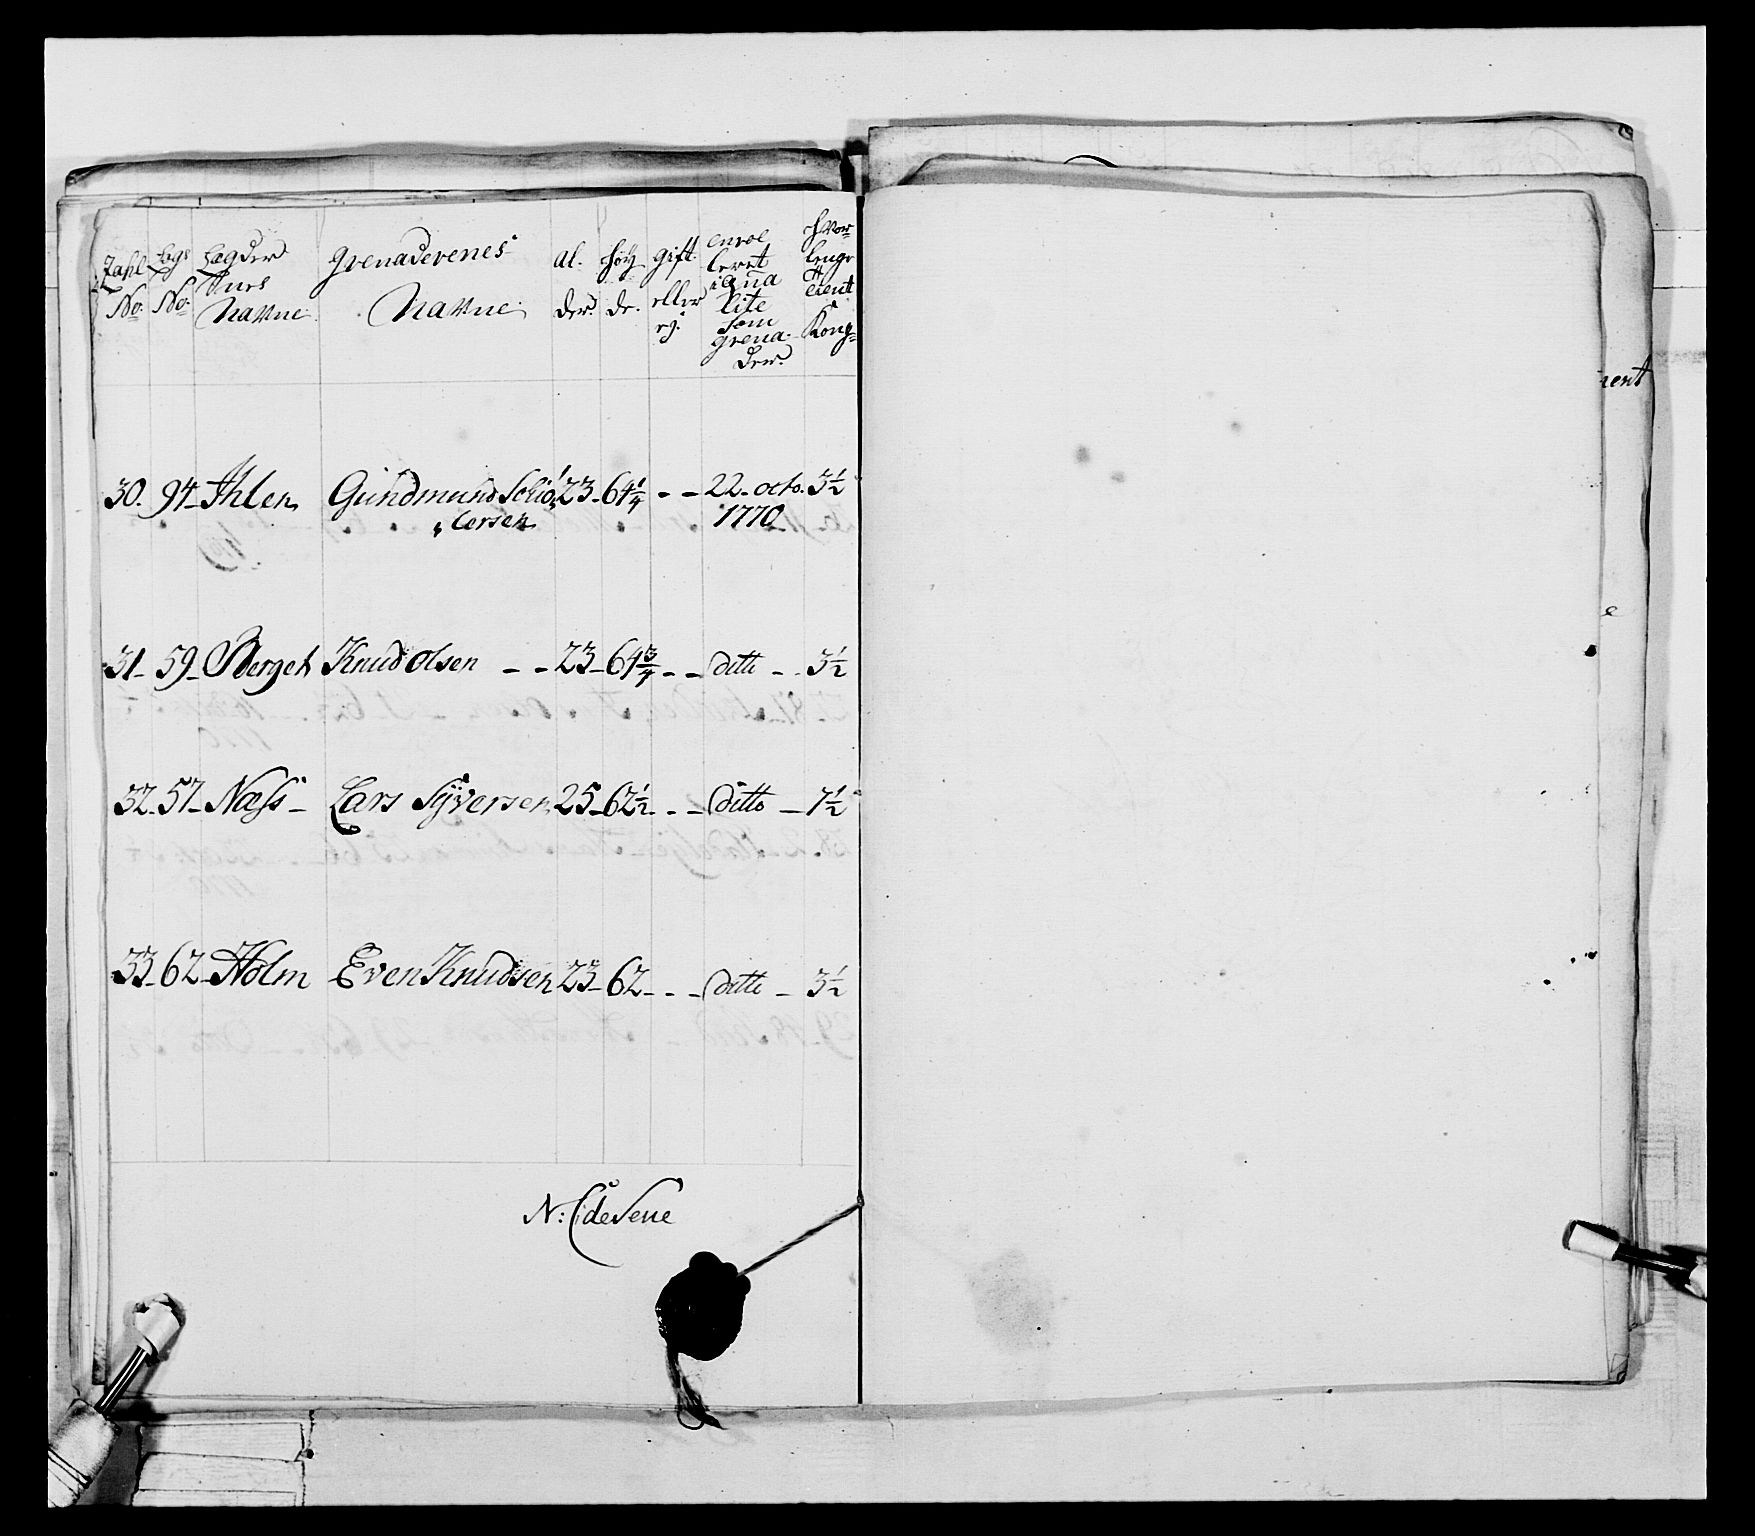 Zahl No. Lægs No. Lægder nes Navne Grenaderenes Navne al. der. høy de. gift eller ej. enrol leret i qua lite som grena der. hvor længe tient Kong
30. 94 Ihlen Gundmund Schio lersen 23 64 1/4 - - 22. octo. 1770 3 1/2
31 59 Berget Knud Olsen - - 23 64 3/4 - - ditto - 3 1/2
32 57 Næss Lars Syversen 25 62 1/2 - - ditto - 7 1/2
33 62 Holm Even Knudsen 23 62 - - ditto - 3 1/2
N: C de Seue
ient
e